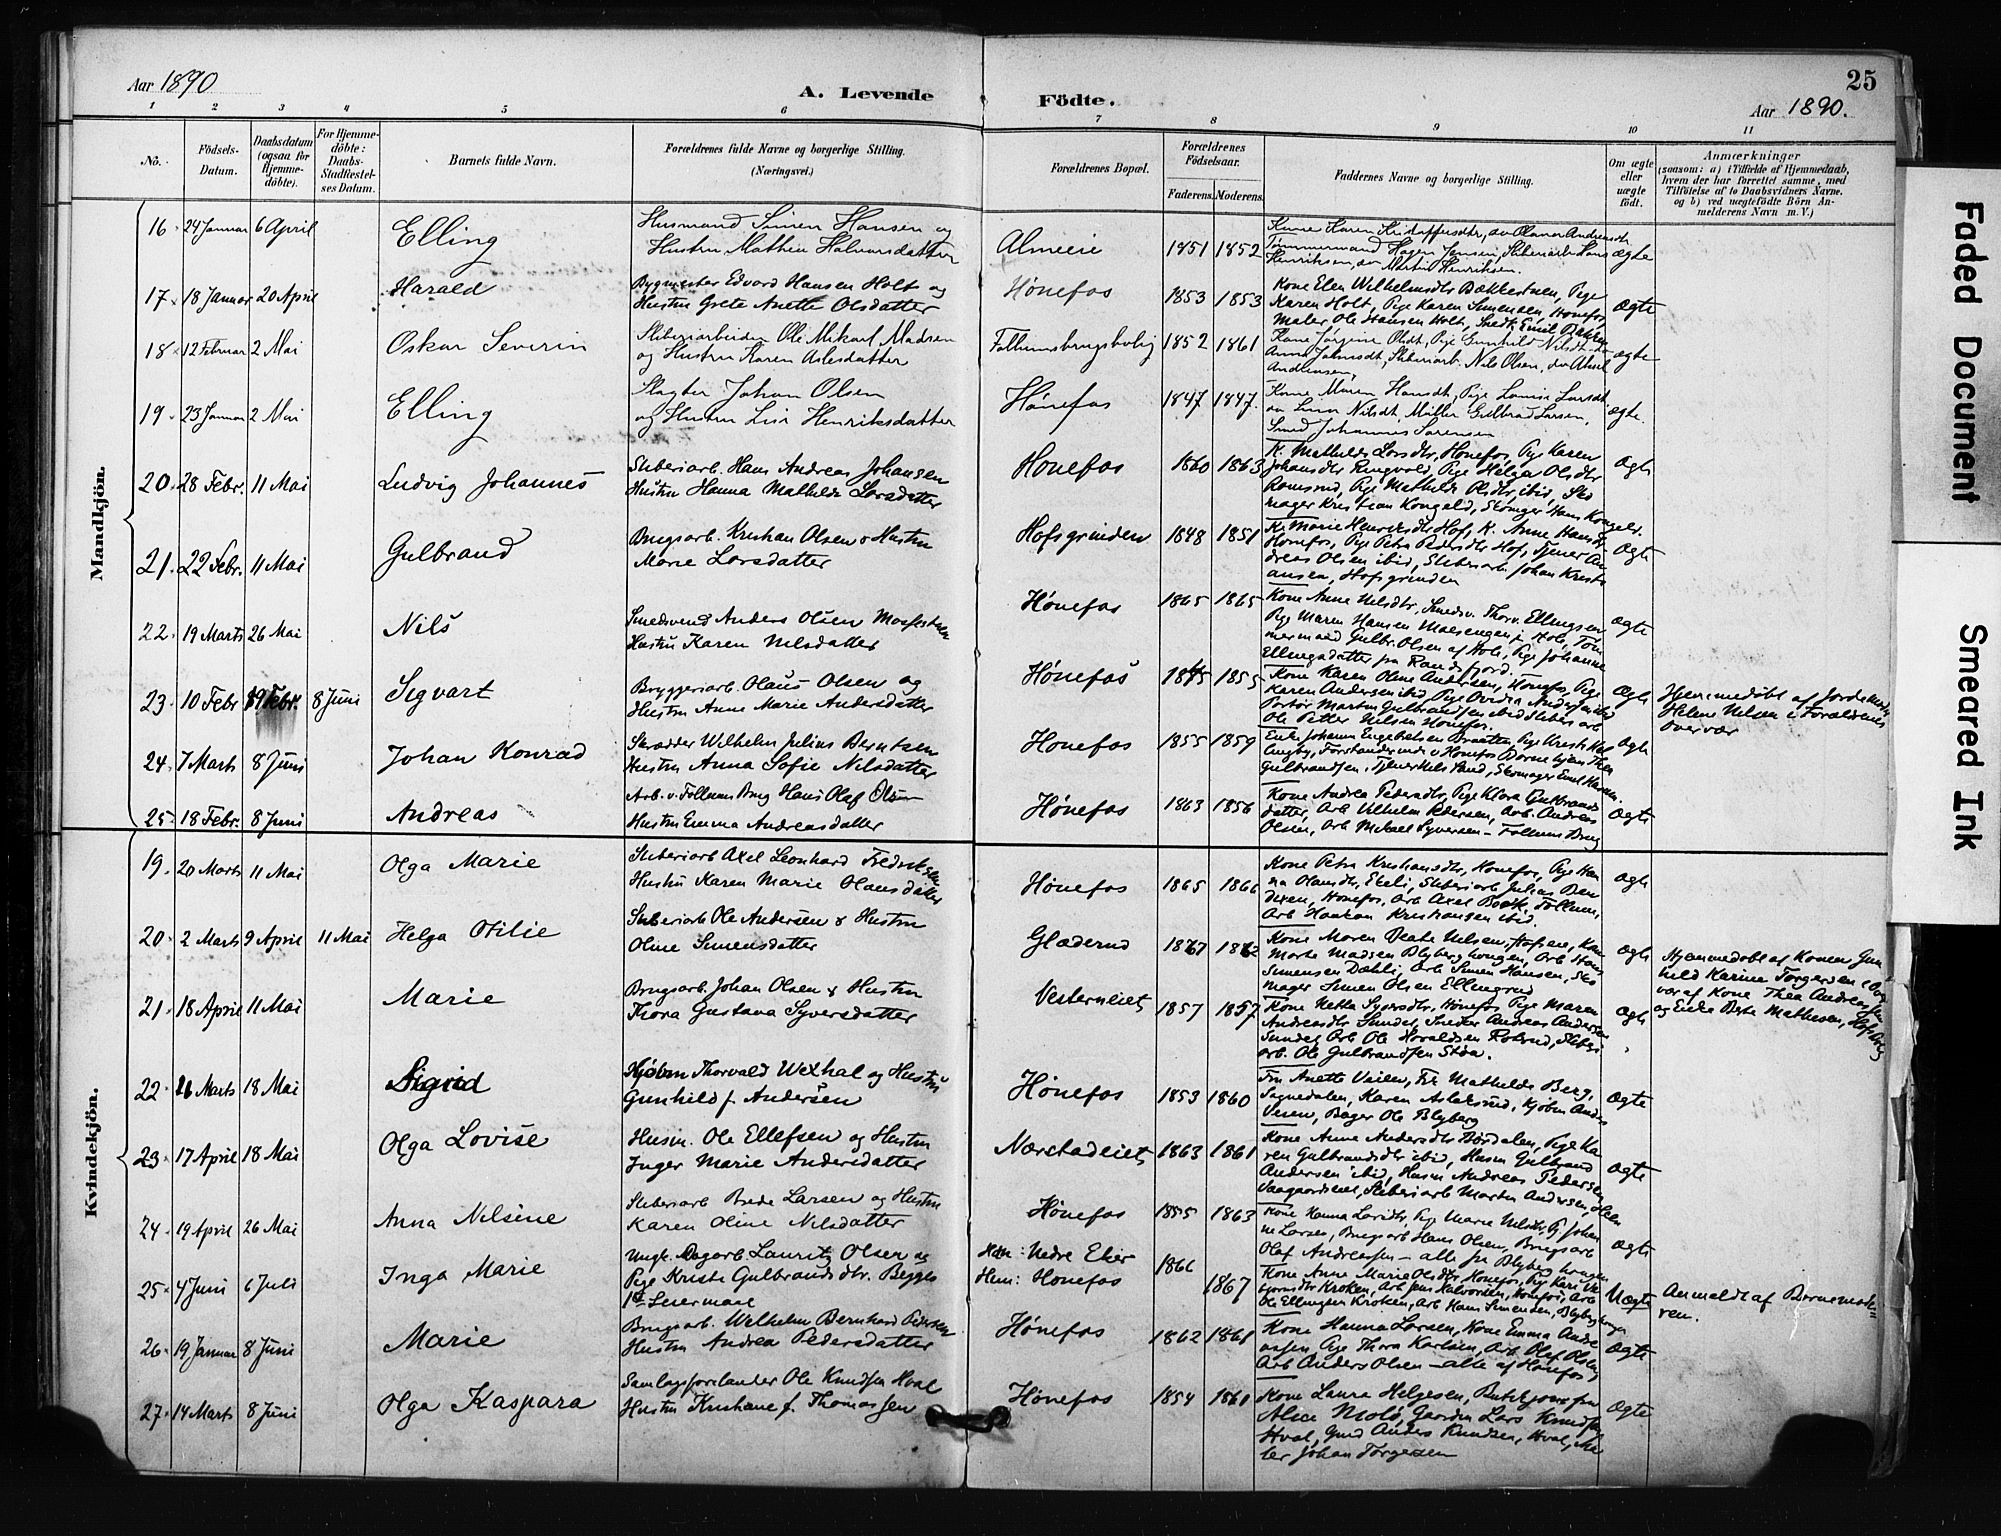 Aar 1890
A. Levende
Födte.
25
Aar 1890.
1 2 3 4 5 6 7 8 9 10 11
No.
Födsels-Datum.
Daabsdatum (ogsaa for Hjemmedöbte).
For Hjemmedöbte: Daabs-Stadfæstelses Datum.
Barnets fulde Navn.
Forældrenes fulde Navne og borgerlige Stilling. (Næringsvei.)
Forældrenes Bopæl.
Forældrenes Födselsaar.
Faderens. Moderens.
Faddernes Navne og borgerlige Stilling.
Om ægte eller uægte födt.
Anmærkninger
(saasom: a) i Tilfælde af Hjemmedaab, hvem der har forrettet samme, med Tilföielse af to Daabsvidners Navne. og b) ved uægtefödte Börn Anmelderens Navn m. V.)
Mandkjön.
16 24 Januar 6 April Elling
Husmand Simen Hansen og
Hustru Mathea Halvorsdatter
Almeie 1851 1852 ægte
17 18 Januar 20 April Harald
Bygmester Edvard Hansen Holt og
Hustru Grete Anette Olsdatter
Hönefos 1853 1853
Karen Holt, Pige Karen Simensen, Hönefos,
Maler Ole Hansen Holt, Snedk. Emil
Ægte
18 12 Februar 2 Mai Oskar Severin
Sliberiarbeider Ole Mikael Madsen
og Hustru Karen Aslesdatter
Follumsbrugsbolig 1852 1861
Kone Jørgine Olsdt, Pige Gunhild Nilsdt
Anne Johnsdt, Sliberiarb. Nils Olsen,
ægte
19 23 Januar 2 Mai Elling
Slagter Johan Olsen
og Hustru Lise Henriksdatter
Hönefos 1847 1847.
Kone Maren Hansdt, Pige Lovise Larsdt
Nilsdt Müller Gulbrand Larsen,
Smed Johannes Sørensen
ægte.
20 28 Febr. 11 Mai Ludvig Johannes
Sliberiarb. Hans Andreas Johansen
Hustru Hanna Mathilde Larsdatter
Hönefos 1860 1863
K. Mathilde Larsdtr, Hönefos, Pige Karen
Johansdtr Ringvold, Pige Helga Olsdtr
Pige Mathilde Olsdtr, ibid, Sko
mager Kristian Kongeld, Skomager Hans Kongelr.
Ægte
21. 22 Febr. 11 Mai Gulbrand
Brugsarb. Kristian Olsen & Hustru
Marie Larsdatter
Hofsgrinden 1848 1851
K. Marie Henriksdtr Hof, K. Anne Hansdtr
Hönefos, Pige Petra Pedersdtr Hof, Tjener An
dreas Olsen ibid, Sliberiarb Johan Kristi
ansen, Hofsgrinden
Ægte
22. 19 Marts 26 Mai Nils
Smedsvend Anders Olsen
Hustru Karen Nilsdatter
Hönefos 1865 1865
Kone Anne Nilsdtr, Smedsv. Thorv. Ellingsen
Pige Maren Hansen Hole, Töm
mermand Gulbr. Olsen af Hole, Pige Johanne
Ellingsdatter fra Randsfjord.
Ægte
23. 10 Febr 19 Febr. 8 Juni Sigvart
Bryggeriarb. Olaus Olsen og
Hustru Anne Marie Andersdatter
Hönefos 1855
Kone Karen Oline Andersen, Hönefos, Pige
Karen Andersen ibid, Pige Ovidia Andersen ibid
Portör Martin Gulbrandsen ibid Sliberiarb
Ole Petter Nilsen Hönefos.
Ægte
Hjemmedöbt af Jordemoder
Helene Nilsen i Forældrenes
overvær
24. 7 Marts 8 Juni Johan Konrad
Skrædder Wilhelm Julius Berntsen
Hustru Anna Sofie Nilsdatter
Hönefos 1855 1859
Enke Johanne Engebretsen Braaten,
Forstanderinde v Hönefos Börnehjem Thea
Gulbrandsen, Tjener Nils Sand, Skomager Emil Hansen.
Ægte
25 18 Febr. 8 Juni Andreas
Arb. v. Follum Brug Hans Olaf Olsen
Hustru Emma Andreasdatter
Hönefos 1863 1856
Kone Andrea Pedersdtr, Pige Klara Gulbrands
datter, Arb Vilhelm Pedersen, Arb. Andreas
Olsen, Arb Mikael Syversen – Follum Brug
Ægte
Kvindekjön.
19. 20 Marts 11 Mai Olga Marie
Sliberiarb Axel Leonhard Fredriksen
Hustru Karen Marie Hansdatter
Hönefos 1865 1866
Kone Petra Kristiansdtr, Hönefos, Pige Han
na Olausdtr, Ekeli, Sliberiarb Julius Ben
dixen, Hönefos, Arb Axel Follum,
Arb Haakon Kristiansen ibid.
Ægte
20. 2 Marts 9 April 11 Mai Helga Otilie
Sliberiarb Ole Andersen & Hustru
Oline Simensdatter
Glæderud 1867 1862
Kone Maren Beate Nilsen, Hofseie, Kone
Marte Madsen Blyberghaugen, Arb Hans
Simensen Dæhli, Arb Simen Hansen, Sko
mager Simen Olsen Ellingrud
Ægte
Hjemmedöbt af Konen Gun
hild Karine Torgersen i Over
vær af Kone Thea Andreassen
og Enke Berte Mathiesen, Hofs Brug
21. 18 April 11 Mai Marie
Brugsarb. Johan Olsen & Hustru
Thora Gustava Syversdatter
Vesterneiet 1857 1857
Kone Netta Syversdtr, Hönefos, Pige Maren
Andreasdtr Sundet, Snedker Andreas Andersen
Sundet, Arb Ole Haraldsen Sliberi
arb. Ole Gulbrandsen Stöa.
Ægte
22. 26 Marts 18 Mai Sigrid
Kjöbm Thorvald Wexhal og Hustru
Gunhild f. Andersen
Hönefos 1853 1860
Fru Anette Veien, Fr Mathilde Berg,
Sognedalen, Karen Aslaksrud, Kjöbm Anders
Veien, Bager Ole Blyberg
Ægte
23. 17 April 18 Mai Olga Lovise
Husm. Ole Ellefsen og Hustru
Inger Marie Andersdatter
Nærstadeiet 1863 1861
Kone Anne Andersdtr Bördalen, Pige Ka
ren Gulbrandsdtr ibid, Husm Gulbrand
Andersen ibid, Husm Andreas Pedersen
Sliberiarb Martin Andersen,
Ægte
24. 19 April 26 Mai Anna Nilsine
Sliberiarb Brede Larsen og Hustru
Karen Oline Nilsdatter
Hönefos 1855 1863
Kone Hanna Larsdtr, Pige Marie Nilsdtr, Pg Johan
ne Larsen, Brugsarb Hans Olsen, Brugsarb
Olaf Andreassen – alle fra Blyberghaugen
Ægte
25. 4 Juni 6 Juli Inga Marie
Ungk. Dagarb Lauritz Olsen og
Pige Kristi Gulbrandsdtr. Begges
1ste Leiermaal
Ham: Nedre Eker 1866
Hun: Hönefos 1867
Kone Anne Marie Olsdtr, Hönefos, Pige Kari
Kroken, Arb Jens Halvorsen, Hönefos, Arb
Ole Ellingsen Kroken, Arb Hans Simensen, Blyberghaugen
Uægte
Anmeldt af Barnemode
ren.
26. 19 Januar 8 Juni Marie
Brugsarb. Wilhelm Bernhard Pedersen
Hustru Andrea Pedersdatter
Hönefos 1862 1861
Kone Hanna Larsen, Kone Emma Andre
assen, Pige Thora Karlsen, Arb Olaf Olsen
Arb Anders Olsen – alle af Hönefos
Ægte
27. 14 Marts 8 Juni Olga Kaspara
Samlagsforstander Ole Knudsen Hval
Hustru Kristiane f. Thomassen
Hönefos 1854 1860
Kone Laura Helgesen,
Alice Mold, Gaardm Lars Knudsen
Hval, Gmd Anders Knudsen, Hval, Ma
ler Johan Torgersen
Ægte
Faded Document
Smeared Ink